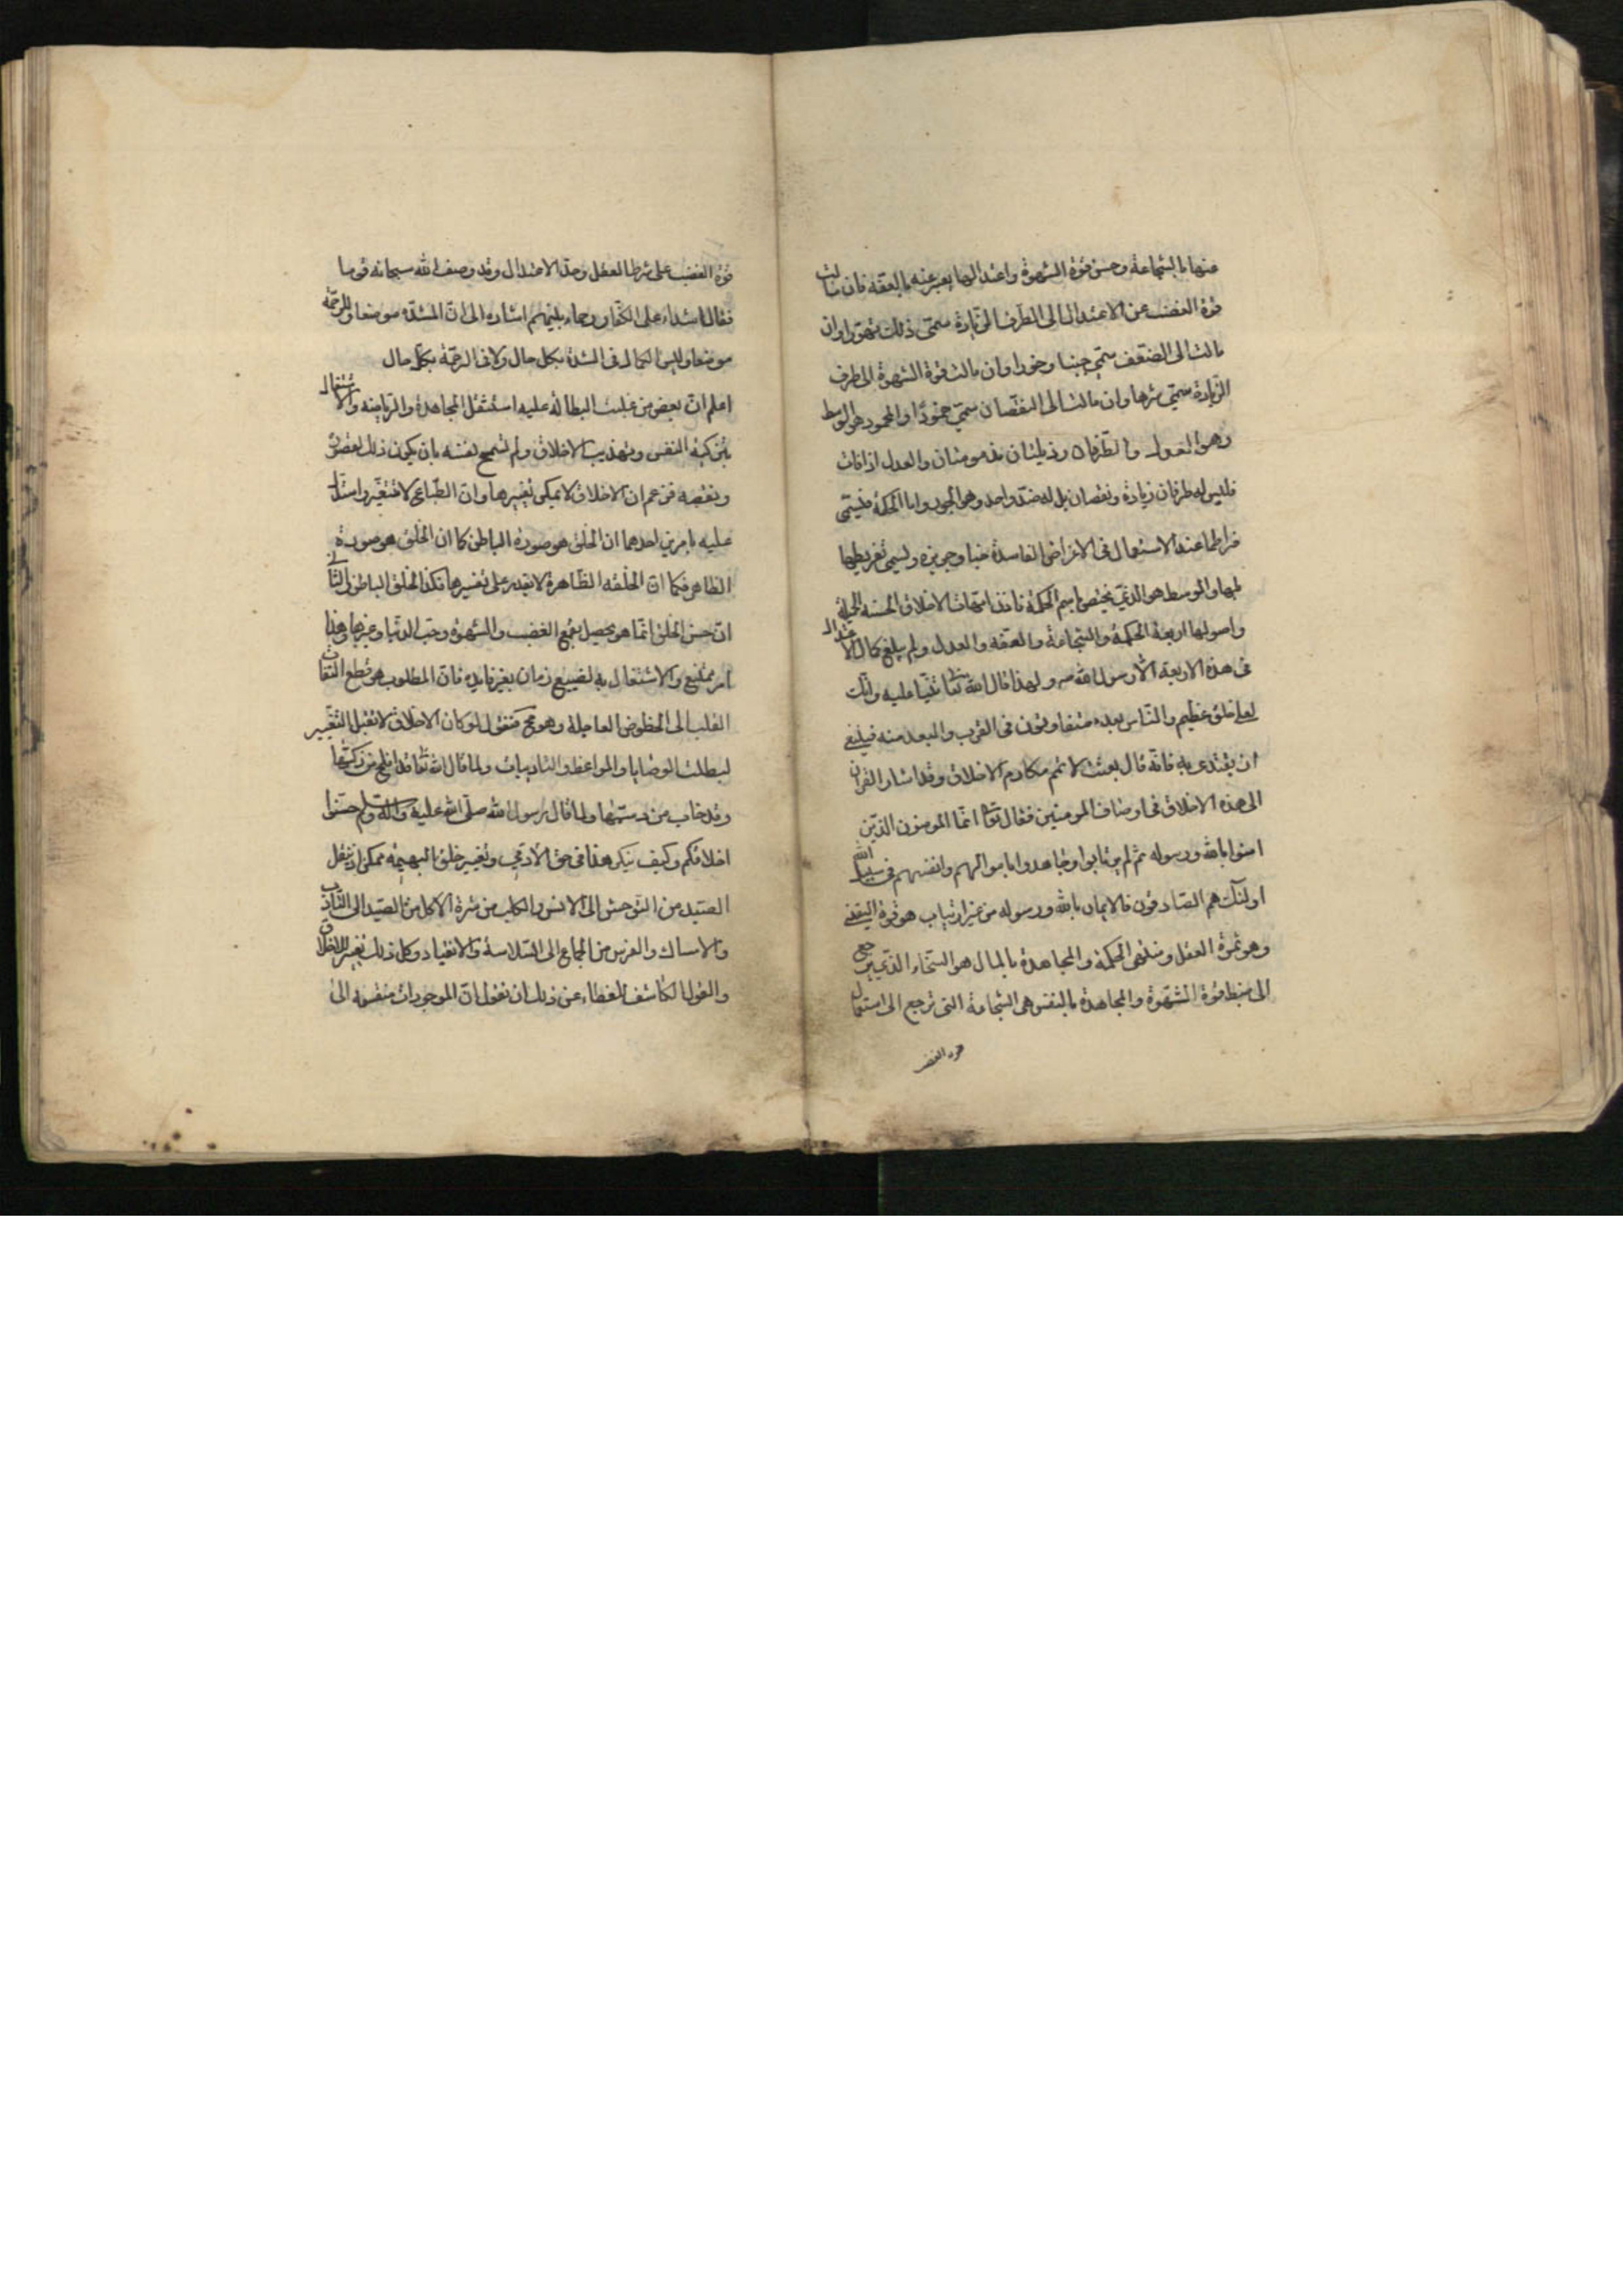 عنها بالشجاعة وحسن قوة الشهوة واعتدالها يعبر عنه بالعفة فان مالت
قوة الغضب عن الاعتدال الى الطرف الزيادة سمّى ذلك تهورا وان
مالت الى الضعف سمّي جبنا وخورا وان مالت قوة الشهوة الى طرف
الزيادة سمّي شرها وان مالت الى النقصان سمّي جمودًا والمحمود هو الوسط
وهو العدل والطرفان رذيلتان مذمومتان والعدل اذا فات
فليس له طرفان زيادة ونقصان بل له ضدّ واحد وهو الجور واما الحكمة فيسمّى
فراطها عند الاستعمال في الاغراض الفاسدة خبا وجربزه ويسمى تفريطها
بلها والوسط هو الذي يختص باسم الحكمة فاذن امّهات الاخلاق الحسنه الجميلة
واصولها اربعة الحكمة والشجاعة والعفه والعدل ولم يبلغ كمال الاعتدال
فى هذه الاربعة الّا رسول الله ص ولهذا قال الله تعا ثنيا عليه وانّك
لعلى خلق عظيم والنّاس بعده متفاوتون فى القرب والبعد منه فينبغي
ان يقتدى به فانّه قال بعثت لاتمّم مكارم الاخلاق وقد اشار القران
الى هذه الاخلاق فى اوصاف المومنين فقال تعا انّما المومنون الذين
امنوا بالله ورسوله ثم لم يرتابوا وجاهدوا باموالهم وانفسهم فى سبيل الله
اولئك هم الصّادقون فالايمان بالله ورسوله من غير ارتياب هو قوة اليقين
وهو ثمرة العقل ومنتهى الحكمة والمجاهدة بالمال هو السّخاء الذي يرجع
الى ضبط قوة الشّهوة والمجاهدة بالنفس هى الشجاعة التى ترجع الى استعمال
قوة الغضب
قوة الغضب على شرط العقل وحدّ الاعتدال وقد وصف الله سبحانه قوما
فقال اشداء على الكفّار رحماء بينهم اشاره الى انّ للشدّه موضعا وللرحمة
موضعا وليس الكمال فى الشدة بكل حال ولا فى الرحمة بكلّ حال
اعلم انّ بعض من غلبت البطالة عليه استثقل المجاهدة والرياضه والاشتغال
بتزكية النفس وتهذيب الاخلاق ولم تسمح نفسه بان يكون ذلك لقصوره
ونقصه فزعم ان الاخلاق لا يمكن تغييرها وانّ الطبائع لا تتغيّر واستدلّ
عليه بامرين احدهما ان الخلق هو صورة الباطن كما ان الخَلق هو صورة
الظاهر فكما انّ الخلقه الظّاهرة لا يقدر على تغييرها فكذا الخلق الباطن والثانى
انّ حسن الخلق انّما هو يحصل بقمع الغضب والشهوة وحبّ الدنيا وغيرها وهذا
امر ممتنع والاشتغال به تضييع زمان بغير فايده فانّ المطلوب هو قطع التفات
القلب الى الحظوظ العاجلة وهو مح فنقول لو كان الاخلاق لا تقبل التغيير
لبطلت الوصايا والمواعظ والتاديبات ولما قال الله تعا قد افلح من زكّيها
وقد خاب من دسّيها ولما قال رسول الله صلّى الله عليه وآله وسلّم حسّنوا
اخلاقكم وكيف ينكر هذا فى حق الآدمي وتغيير خلق البهيمه ممكن اذ ينقل
الصّيد من التوحش الى الانس والكلب من شره الاكل من الصّيد الى التّادب
والامساك والفرس من الجماع الى السّلاسة والانقياد وكل ذلك تغيير للاخلاق
والقول الكاشف للغطاء عن ذلك ان نقول انّ الموجودات منقسمه الى